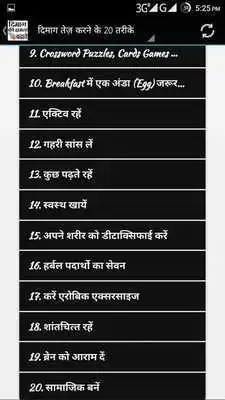 3G
5:25 PM
दिमाग तेज़ करने के 20 तरीके
9. Crossword Puzzles, Cards Games ...
10. Breakfast में एक अंडा (Egg) जरूर...
11. एक्टिव रहें
12. गहरी सांस लें
13. कुछ पढ़ते रहें
14. स्वस्थ खायें
15. अपने शरीर को डीटाक्सिफाई करें
16. हर्बल पदार्थो का सेवन
17. करें एरोबिक एक्सरसाइज
18. शांतचित्त रहें
19. ब्रेन को आराम दें
20. सामाजिक बनें